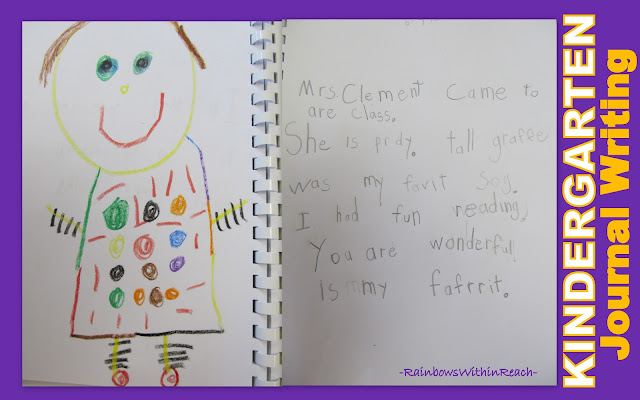 Mrs Clement Came to
are class.
She is prdy. tall graffe
was my favrit Sog.
I had fun reading,
You are wonderful
is my fafrrit.
-RainbowsWithinReach-
KINDERGARTEN
Journal Writing